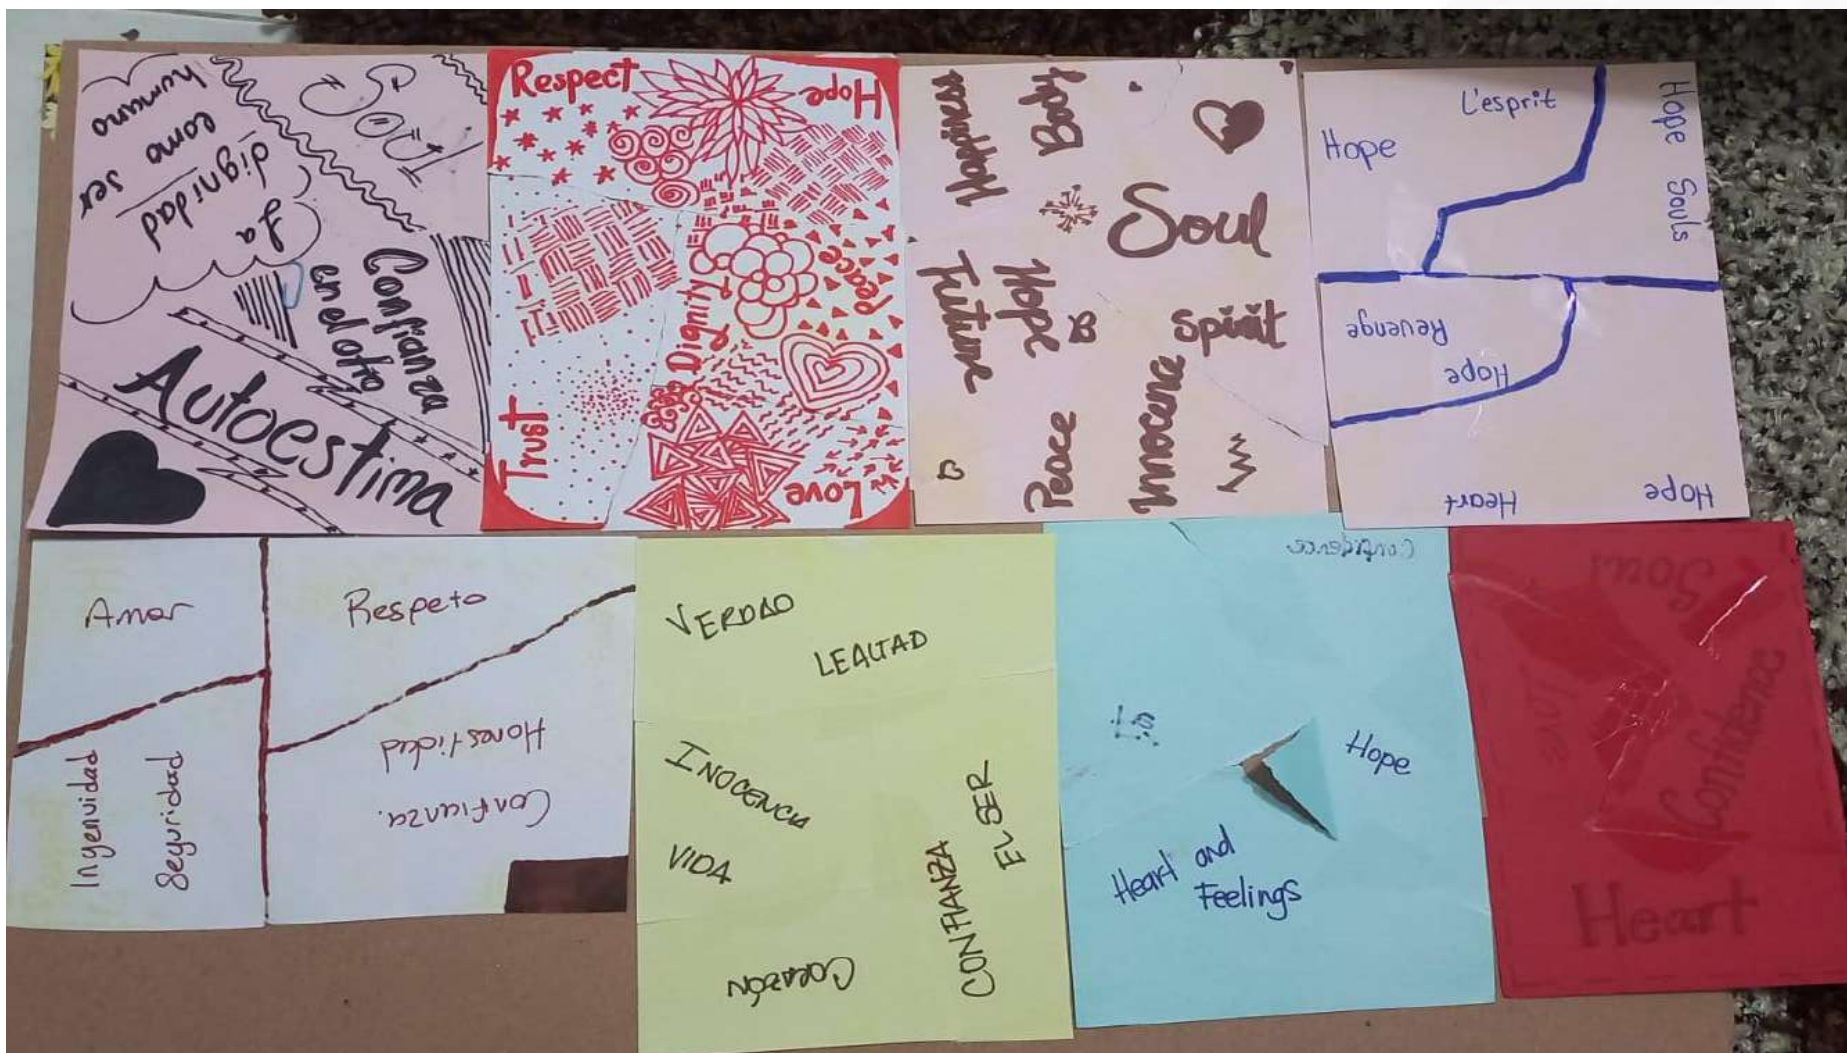 Soul
La
dignidad
como ser
humano
Confianza
en el otro
Autoestima
Respect
Hope
Peace
Dignity
Trust
Love
Happiness
Body
Soul
Future
Hope
Spirit
Peace
Innocence
L'esprit
Hope
Hope Souls
Revenge
Hope
Heart
Hope
Amor
Respeto
Ingenuidad
Seguridad
Honesticidad
Confianza.
VERDAD
LEALTAD
INOCENCIA
VIDA
EL SER
CONFIANZA
CORAZÓN
Confidence
Hope
Heart and
Feelings
Soul
Love
Confidence
Heart